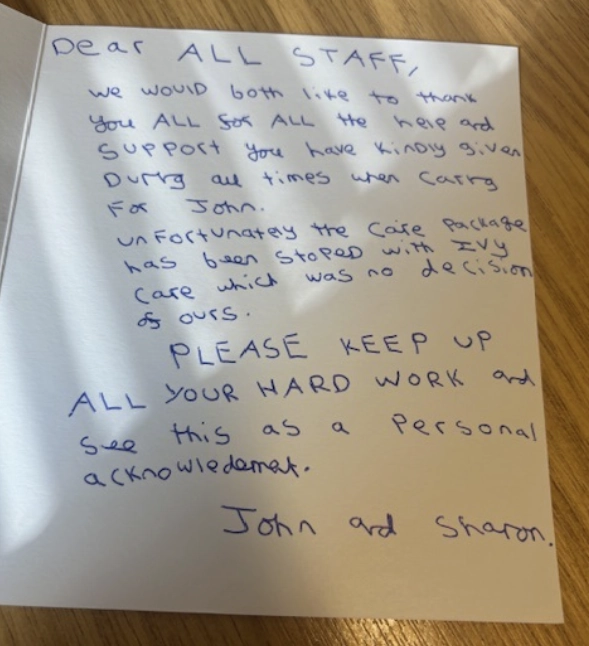 Dear ALL STAFF,
we would both like to thank
you ALL for ALL the help and
support you have kindly given
During all times when caring
For John.
unfortunately the care package
has been stoped with IVY
care which was no decision
of ours.
PLEASE KEEP UP
ALL YOUR HARD WORK and
see this as a Personal
acknowledemat.
John and Sharon.